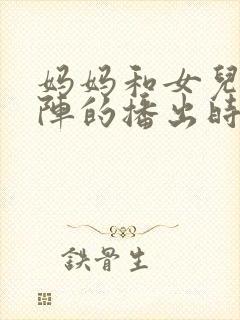 妈妈和女兒
陣的播出時
鉄骨生